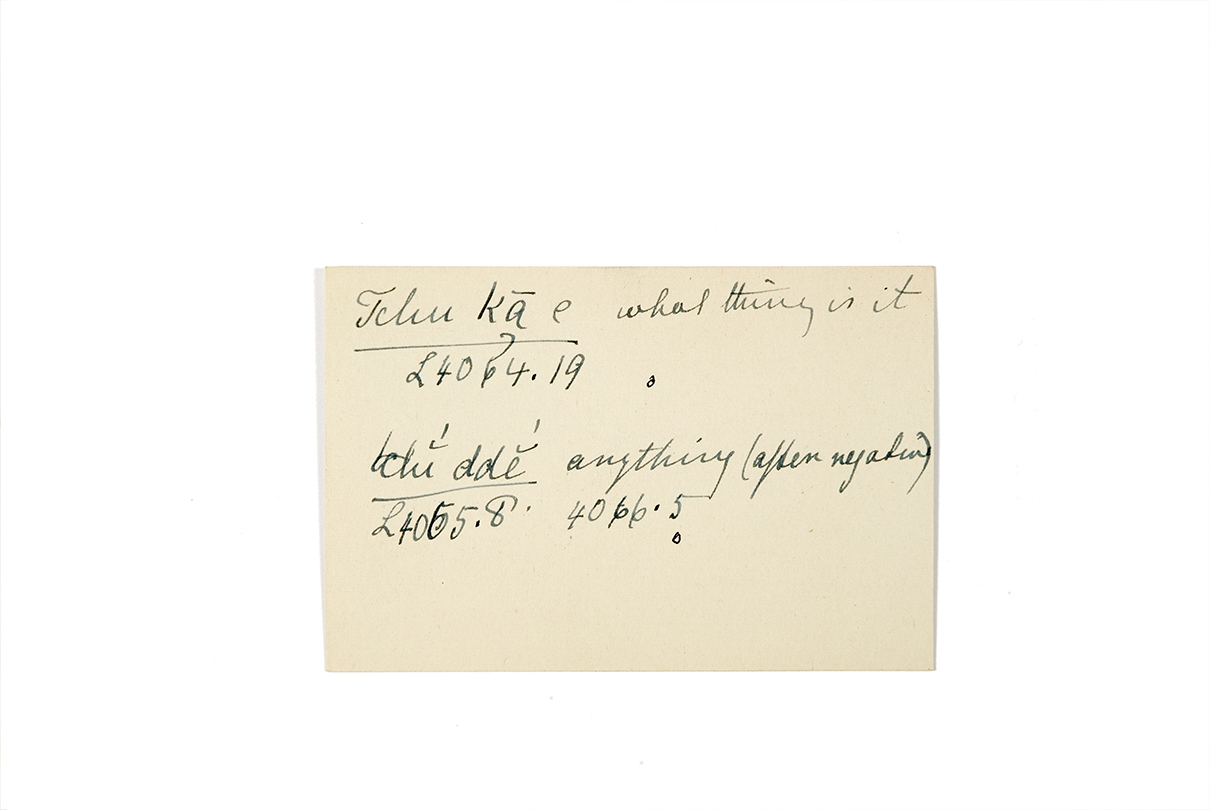 Tchu kā e what thing is it
L4064.19
tchŭ́ ddĕ́ anything (after negative)
L4065.8. 4066.5